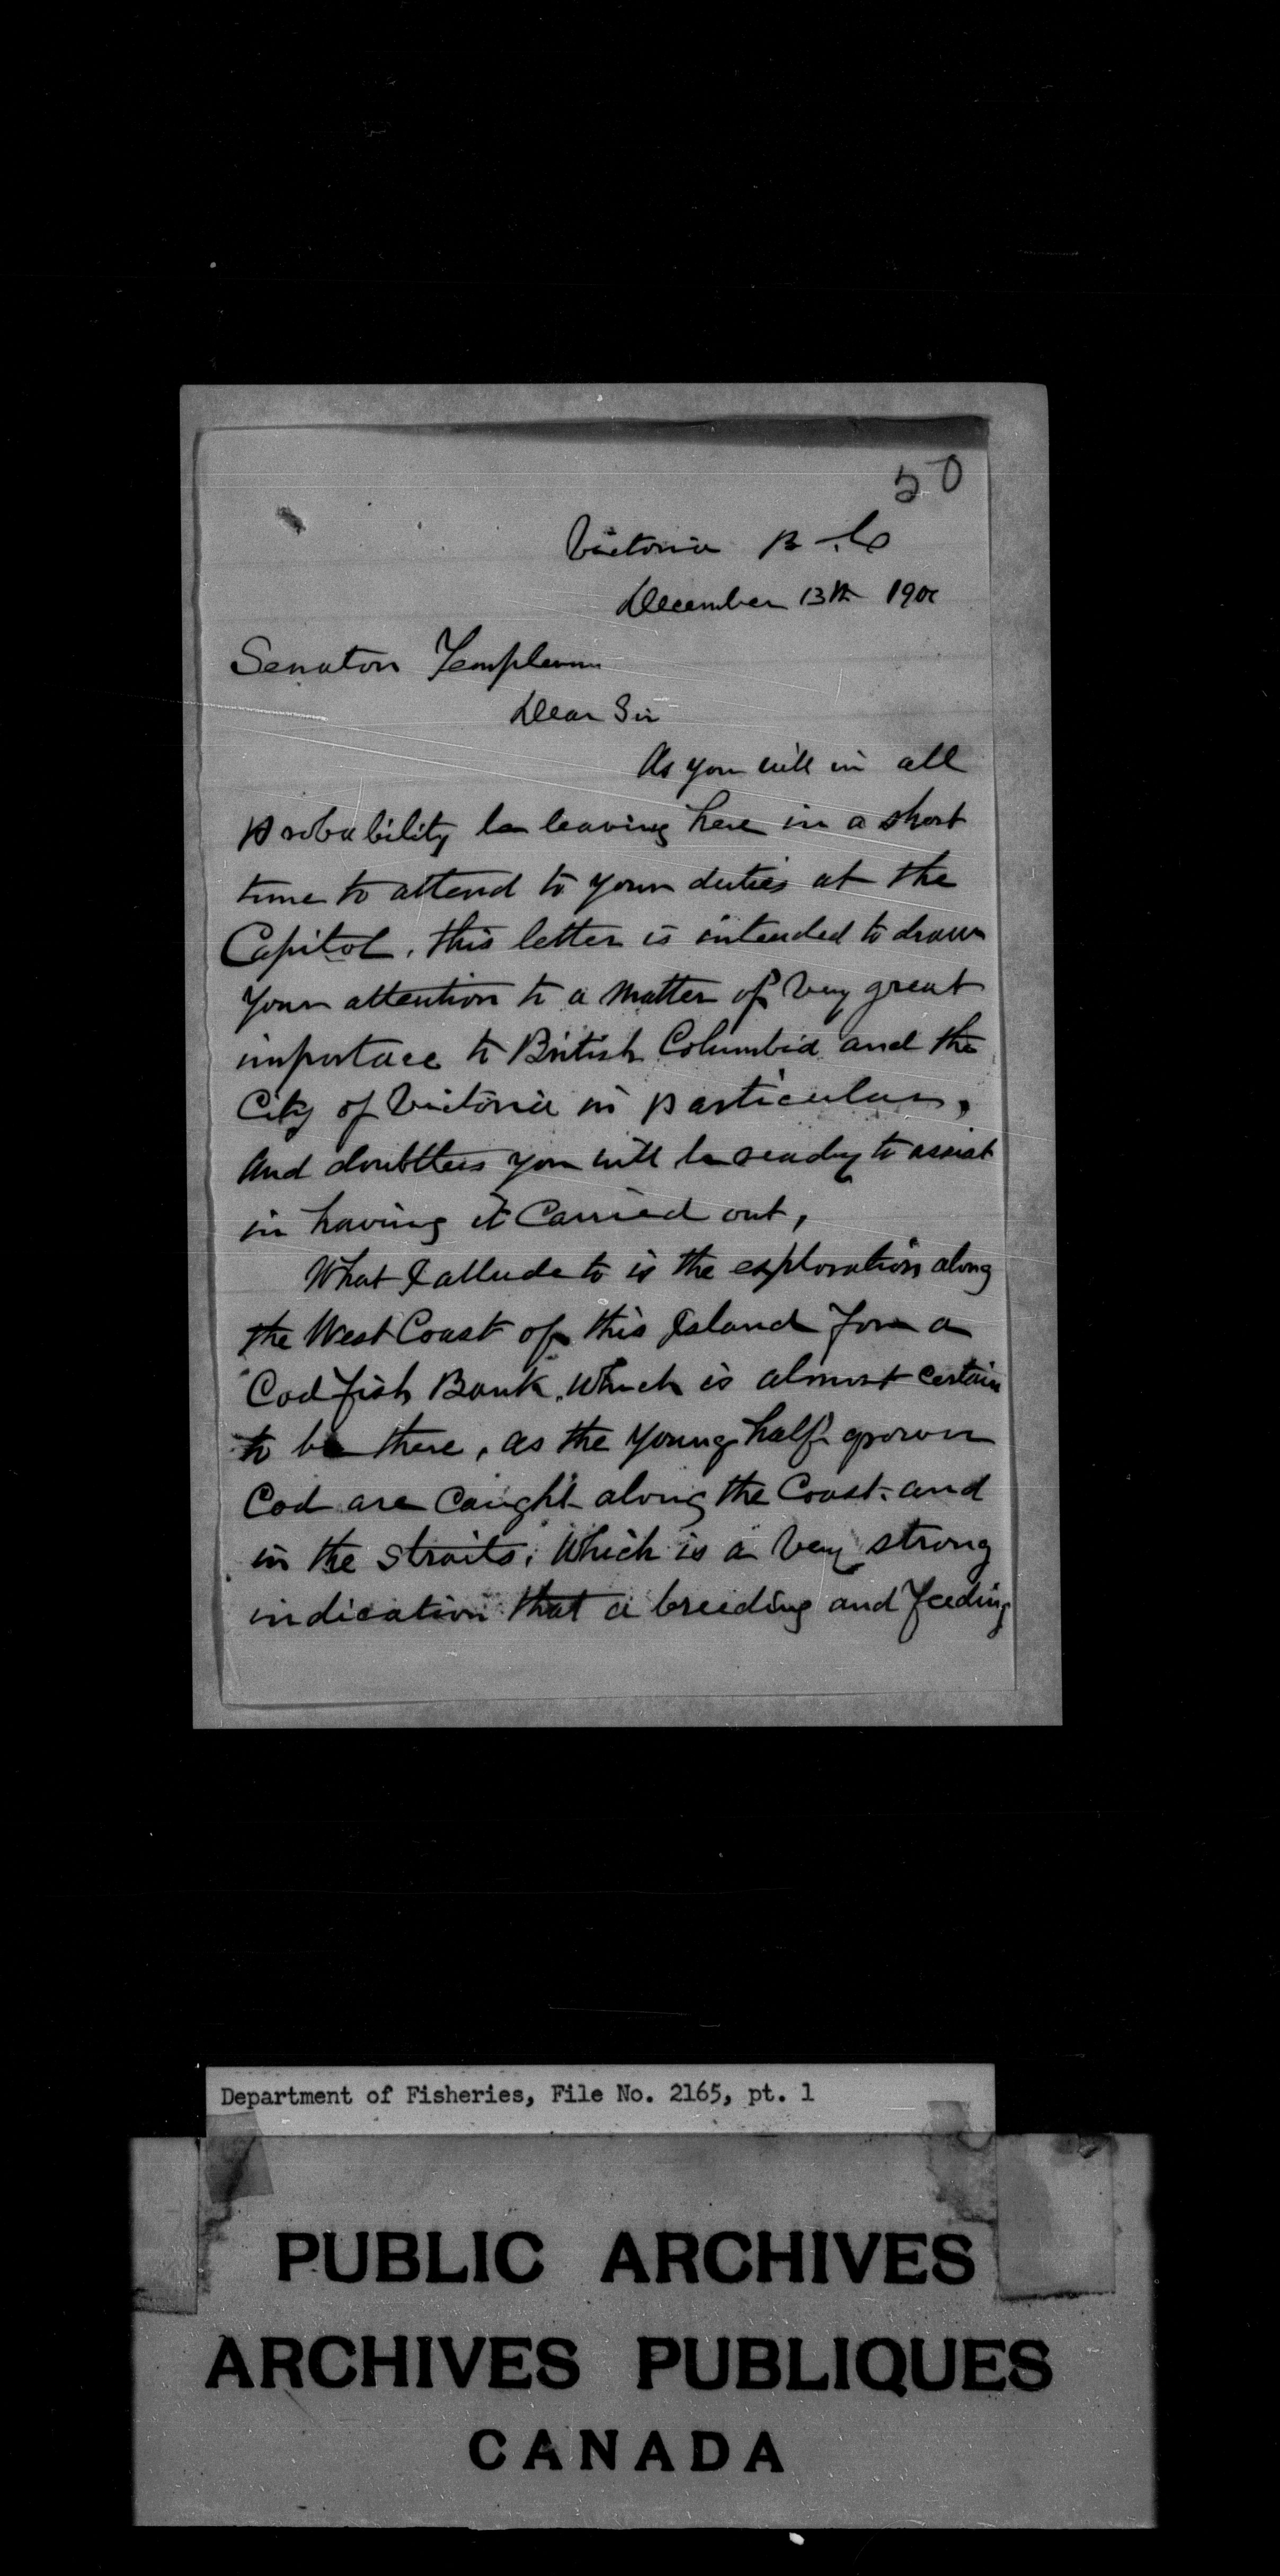 50
Victoria B.C.
December 13th 190
Senator Templeman
Dear Sir
As you will in all
probability be leaving here in a short
time to attend to your duties at the
Capitol, this letter is intended to draw
your attention to a matter of very great
importace to British Columbia and the
City of Victoria in particular,
and doubtless you will be ready to assist
in having it Carried out,
What I allude to is the exploration along
the West Coast of this Island for a
Cod fish Bank, which is almost certain
to be there, as the young half grown
Cod are Caught along the Coast, and
in the straits, which is a very strong
indication that a breeding and feeding
Department of Fisheries, File No. 2165, pt. 1
PUBLIC ARCHIVES
ARCHIVES PUBLIQUES
CANADA